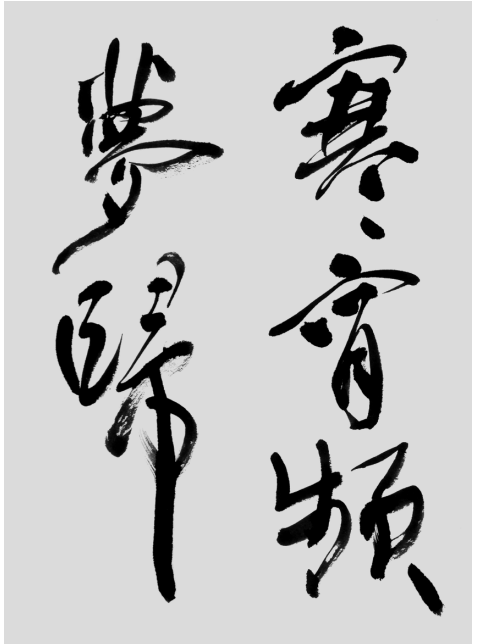 寒宵頻
夢歸